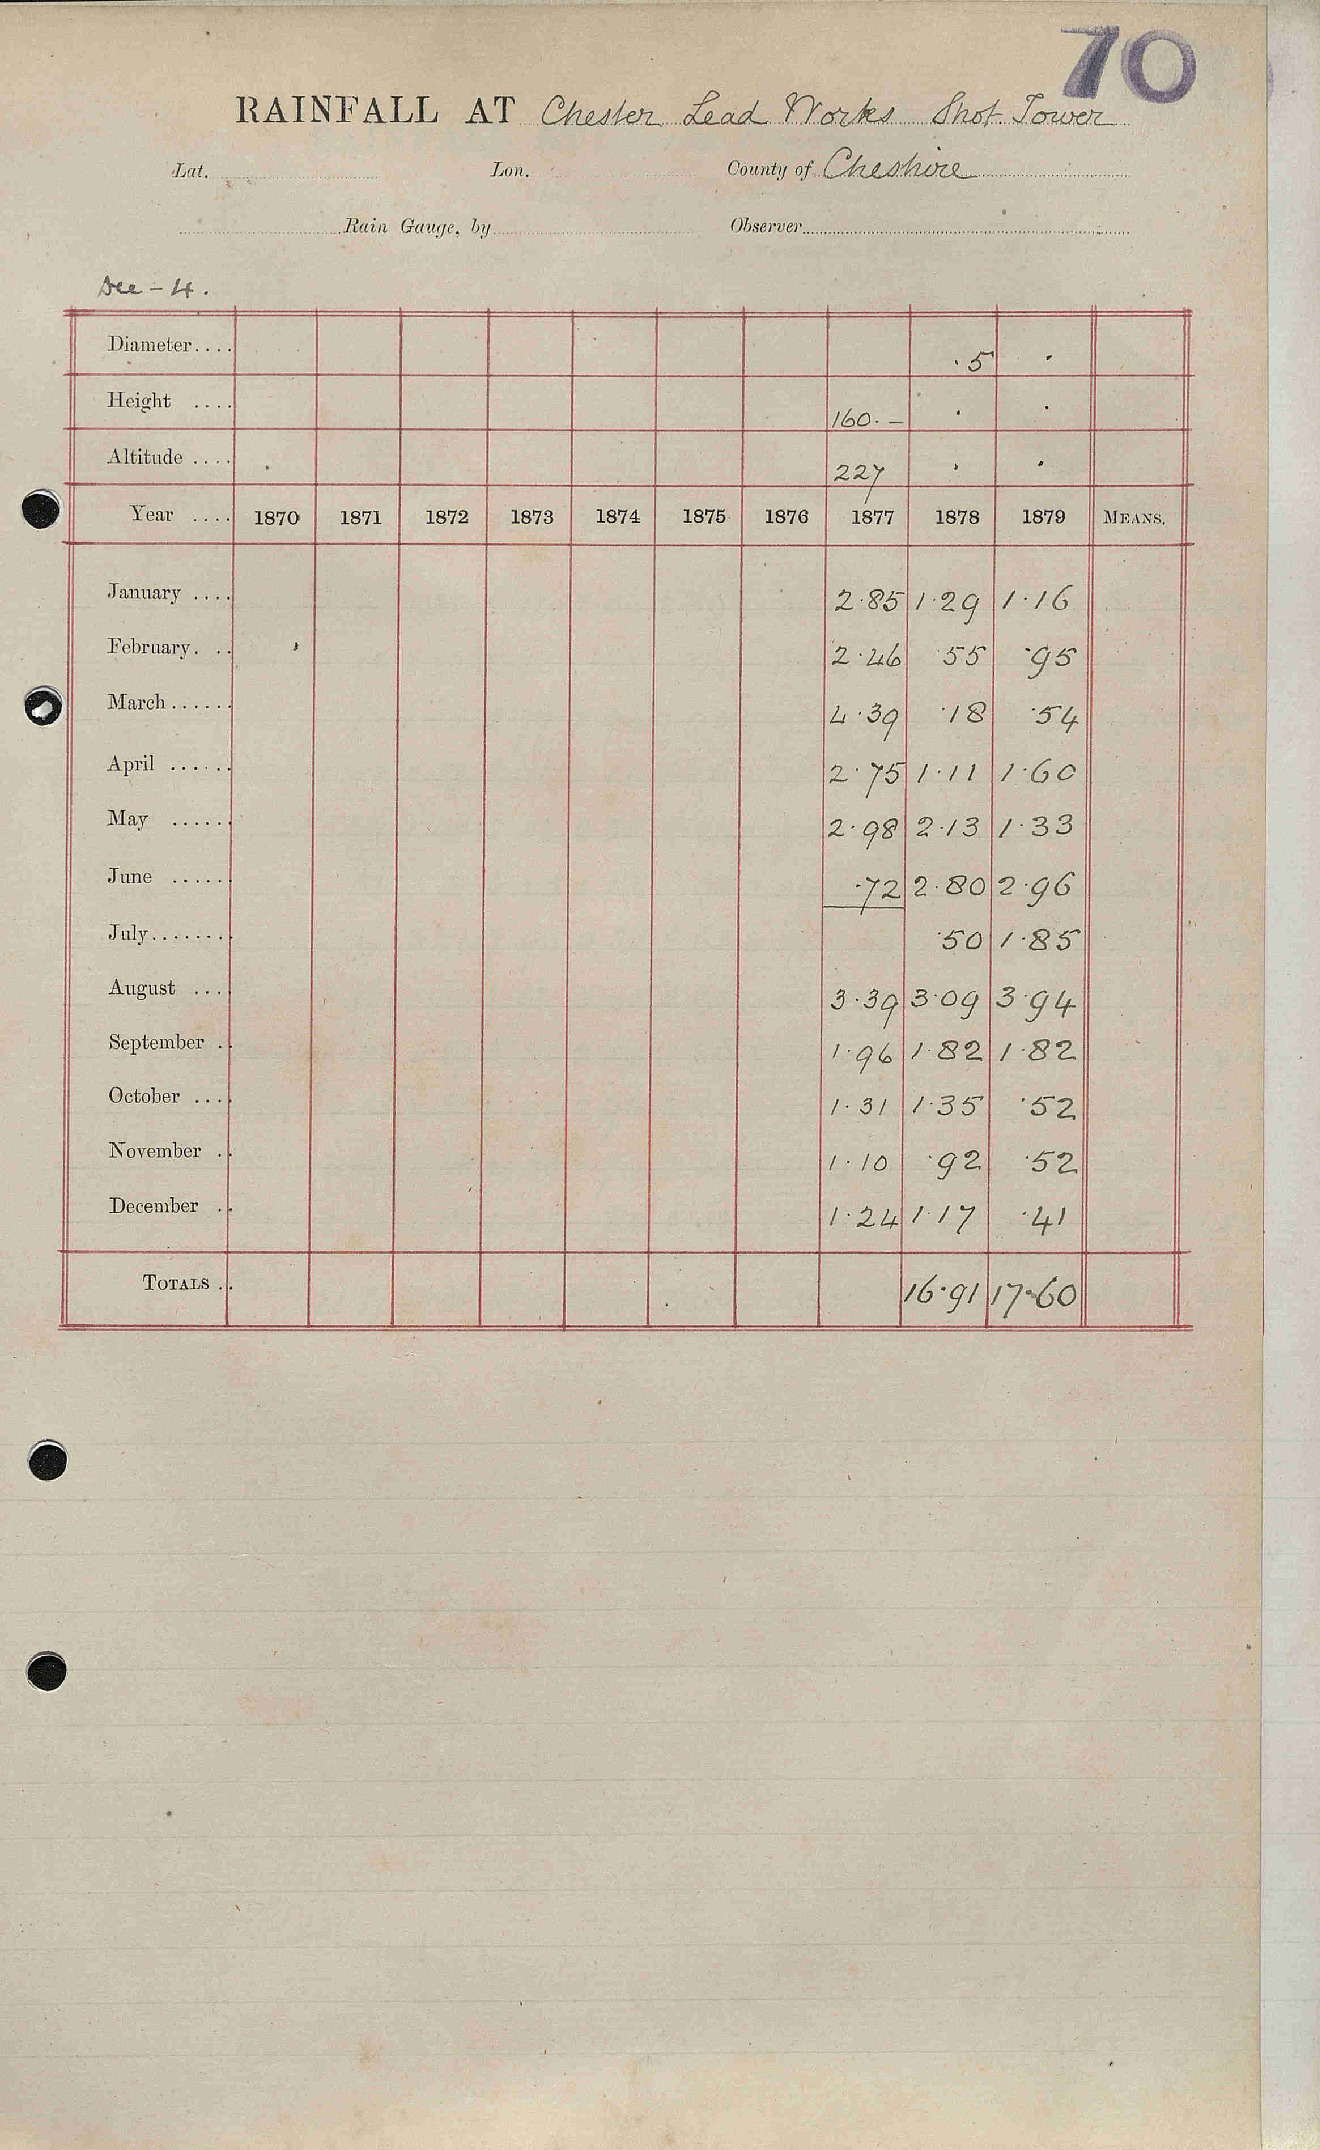 70
RAINFALL AT Chester Lead Works Shot Tower
Lat. Lon. County of Cheshire
Rain Gauge, by Observer
Dee - 4.
Diameter.... ·5 ·
Height .... 160·– · ·
Altitude .... 227 · ·
Year .... 1870 1871 1872 1873 1874 1875 1876 1877 1878 1879 MEANS.
January .... 2·85 1·29 1·16
February. .. 2·46 ·55 ·95
March...... 4·39 ·18 ·54
April ...... 2·75 1·11 1·60
May ...... 2·98 2·13 1·33
June ...... ·72 2·80 2·96
July....... ·50 1·85
August .... 3·39 3·09 3·94
September .. 1·96 1·82 1·82
October .... 1·31 1·35 ·52
November .. 1·10 ·92 ·52
December .. 1·24 1·17 ·41
TOTALS .. 16·91 17·60